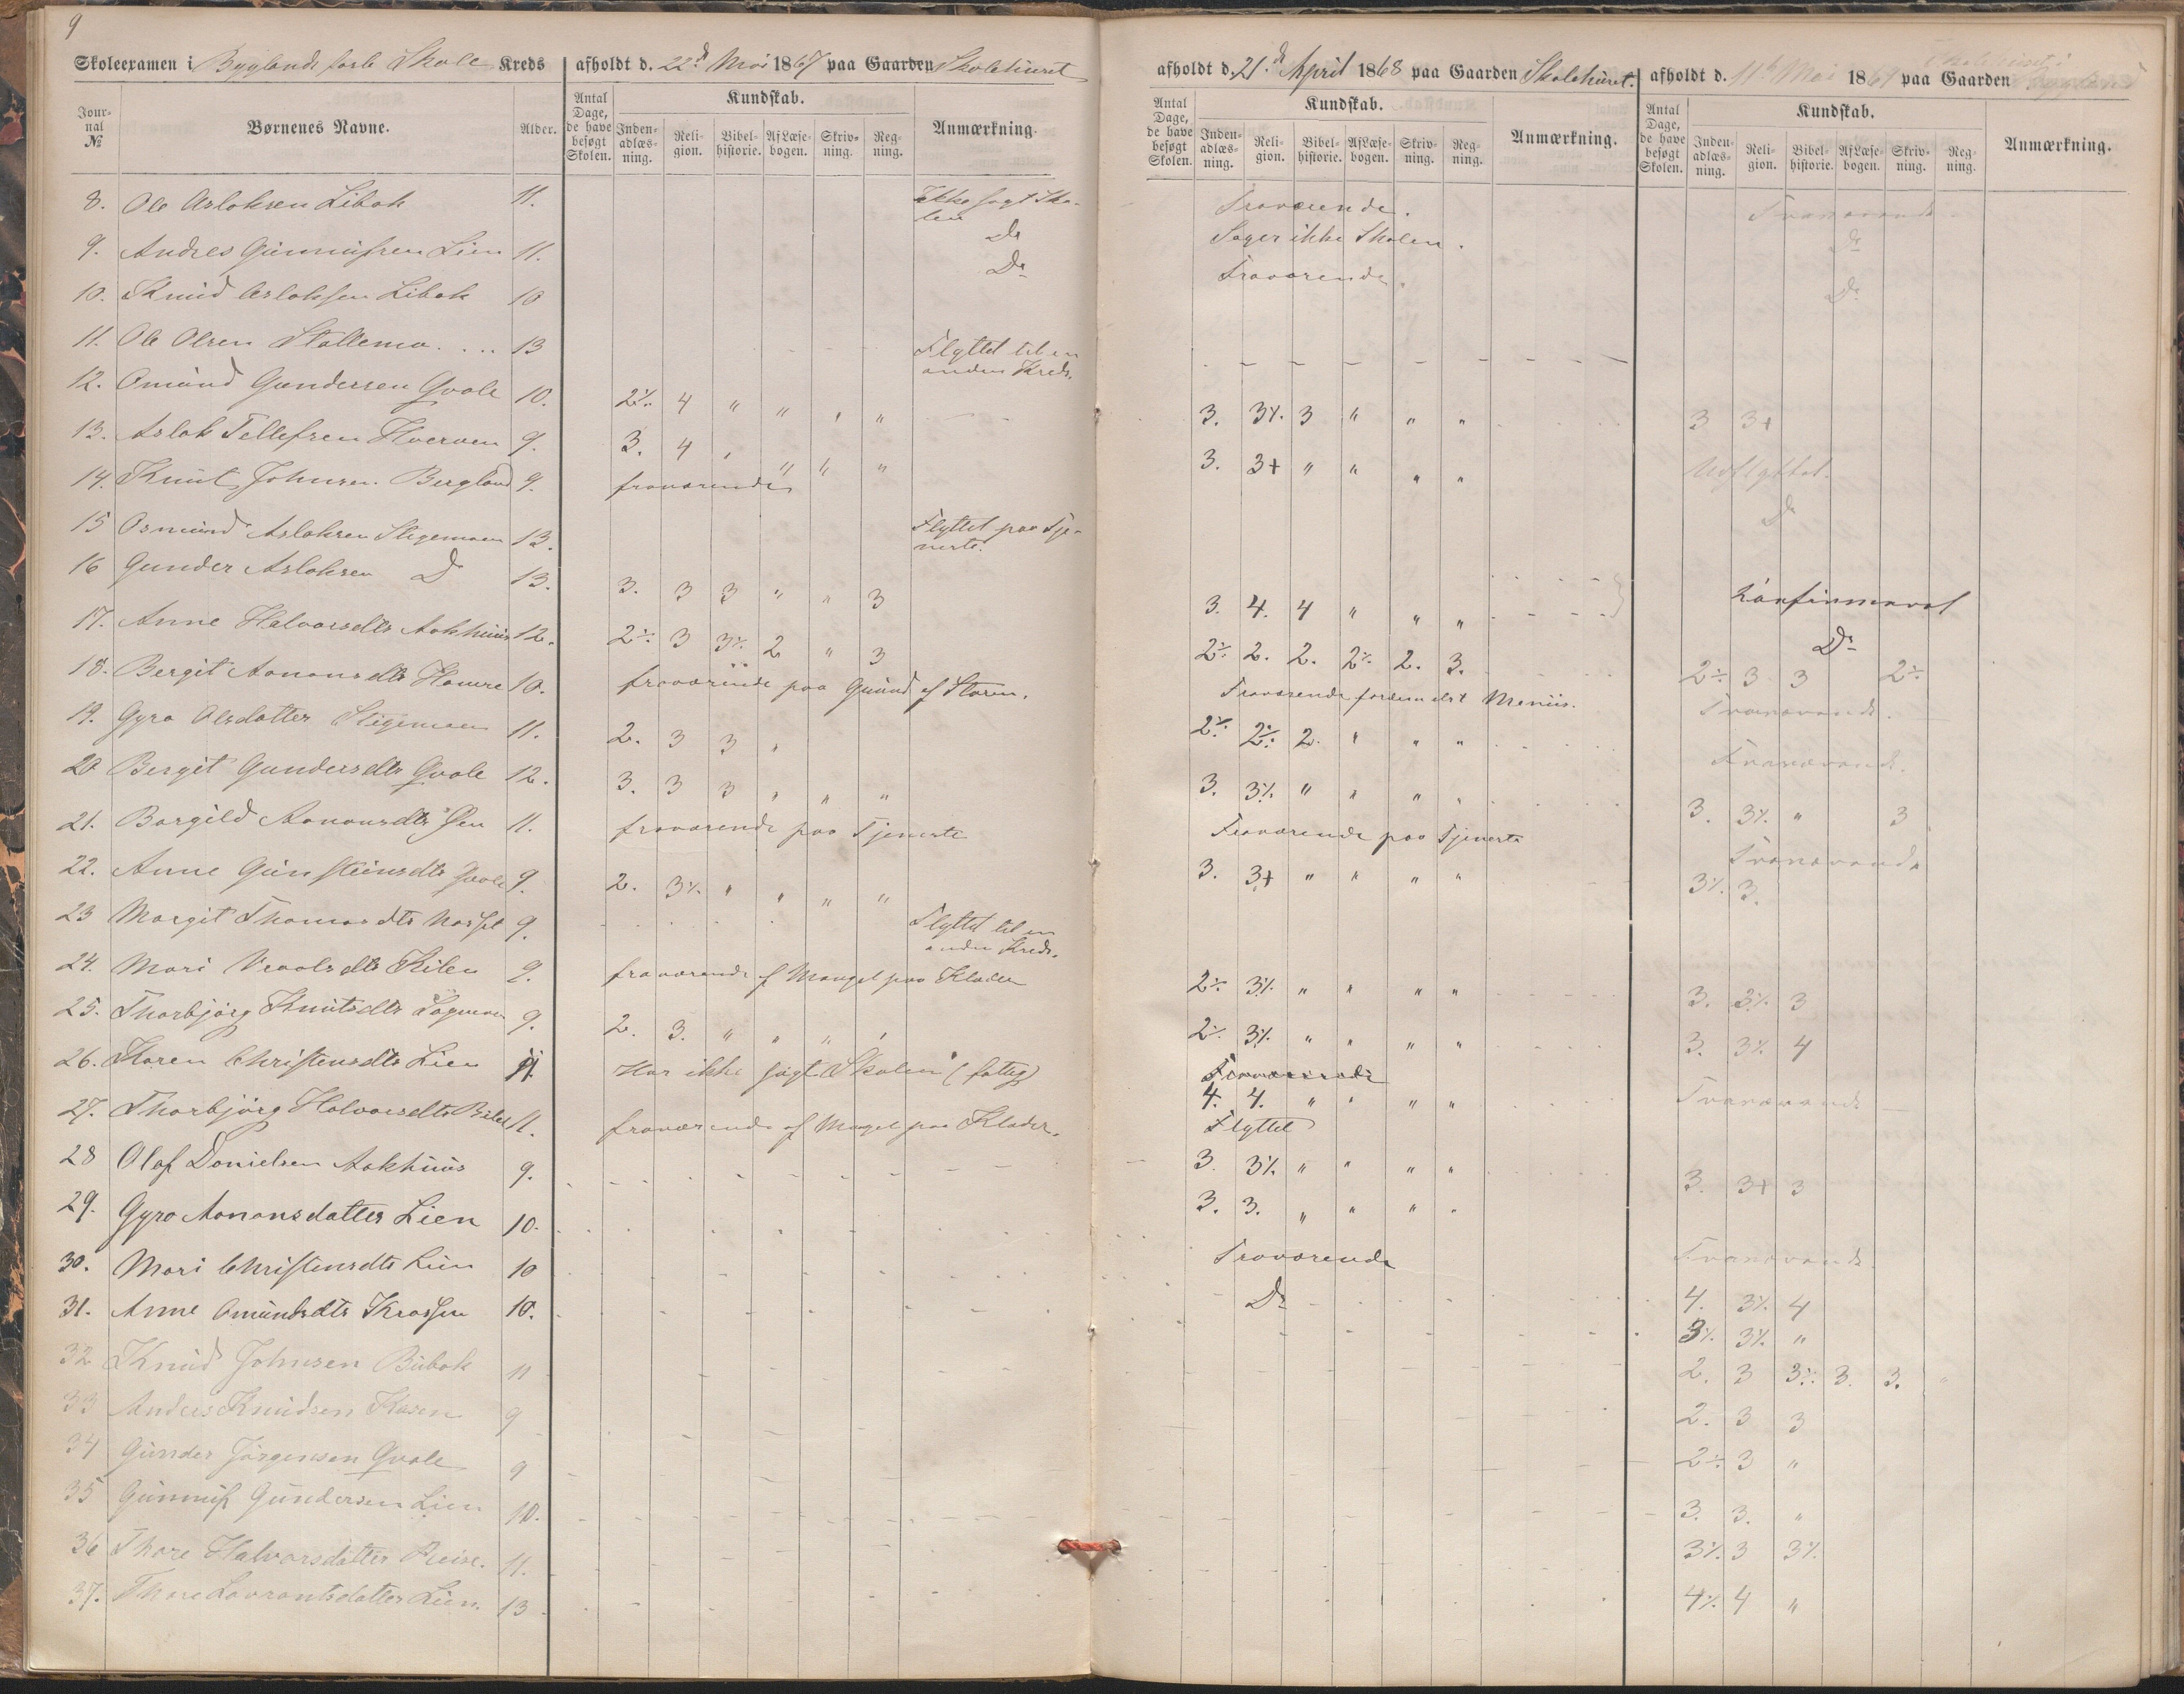 9
Skoleexamen i Byglands faste Skole Kreds afholdt d. 22d Mai 1867 paa Gaarden Skolehuset
Jour-nal No Børnenes Navne. Alder. Antal Dage, de have besøgt Skolen. Kundskab. Inden-adlæs-ning. Reli-gion. Bibel-historie. Af Læse-bogen. Skriv-ning. Reg-ning. Anmærkning.
8. Ole Aslaksen Libak 11. Ikke søgt Sko-len
9. Andres Gunnufsen Lien 11. Do
10. Knud Aslaksen Libak 10 Do
11. Ole Olsen Stallemo . . . . 13 Flyttet til en anden Kreds.
12. Omund Gundersen Qvale 10. 2÷ 4 " " , "
13. Aslak Tellefsen Hverven 9. 3. 4 , " " "
14. Knut Johnsen Bergland 9. fraværende
15 Osmund Aslaksen Stigemoen 13. Flyttet paa Tje-neste.
16 Gunder Aslaksen Do 13. 3. 3 3 " " 3
17. Anne Halvorsdtr Aakhuus 12. 2÷ 3 3÷ 2 " 3
18. Bergit Aanonsdtr Haware 10. fraværende paa Grund af Storm.
19. Gyro Olsdatter Stigemoen 11. 2. 3 3 "
20 Bergit Gundersdtr Qvale 12. 3. 3 3 , " "
21. Borgild Aanonsdtr Øen 11. fraværende paa Tjeneste
22. Anne Gunsteinsdtr Qvale 9. 2. 3÷ " " " "
23 Margit Thomasdtr 9. Flyttet til en anden Kreds.
24. Mari dtr Kilen 9. fraværende af Mangel paa Klæder
25. Thorbjørg Knutsdtr 9. 2. 3. " " " ,
26. Karen Christensdtr Lien 11. Har ikke søgt Skolen (fattig)
27. Thorbjørg Halvorsdtr 11. fraværende af Mangel paa Klæder.
28 Olaf Danielsen Aakhuus 9.
29. Gyro Aanonsdatter Lien 10.
30. Mari Christensdtr Lien 10
31. Anne Omundsdtr 10.
32 Knud Johnsen Bubak 11
33 Anders Knudsen Kasen 9
34 Gunder Jørgensen Qvale 9
35 Gunnuf Gundersen Lien 10.
36 Thore Halvorsdatter 11.
37. Thore Lavrantsdatter Lien. 13
afholdt d. 21.d April 1868 paa Gaarden Skolehuset.
Antal Dage, de have besøgt Skolen. Kundskab. Inden-adlæs-ning. Reli-gion. Bibel-historie. Af Læse-bogen. Skriv-ning. Reg-ning. Anmærkning.
Fraværende.
Søger ikke Skolen.
Fraværende.
3. 3÷ 3 " " "
3. 3+ " " " "
3. 4. 4 " " "
2÷ 2. 2. 2÷ 2. 3.
Fraværende formedelst
2÷ 2÷ 2. " " "
3. 3÷ " " " "
Fraværende paa Tjeneste
3. 3+ " " " "
2÷ 3÷ " " " "
2÷ 3÷ " " " "
Fraværende
4. 4. " " " "
Flyttet
3. 3÷ " " " "
3. 3. " " " "
Fraværende
Do
afholdt d. 11te Mai 1869 paa Gaarden Skolehuset i Bygland
Antal Dage, de have besøgt Skolen. Kundskab. Inden-adlæs-ning. Reli-gion. Bibel-historie. Af Læse-bogen. Skriv-ning. Reg-ning. Anmærkning.
Fraværende
Do
Do
3 3+
Udflyttet.
Do
Konfirmeret
Do
2÷ 3 3 2÷
Fraværende.
Fraværende.
3. 3÷ " 3
Fraværende
3÷ 3.
3. 3÷ 3
3. 3÷ 4
Fraværende
3. 3+ 3
Fraværende
4. 3÷ 4
3÷ 3÷ "
2. 3 3÷ 3. 3. "
2. 3 3
2÷ 3 "
3. 3. "
3÷ 3 3÷
4÷ 4 "